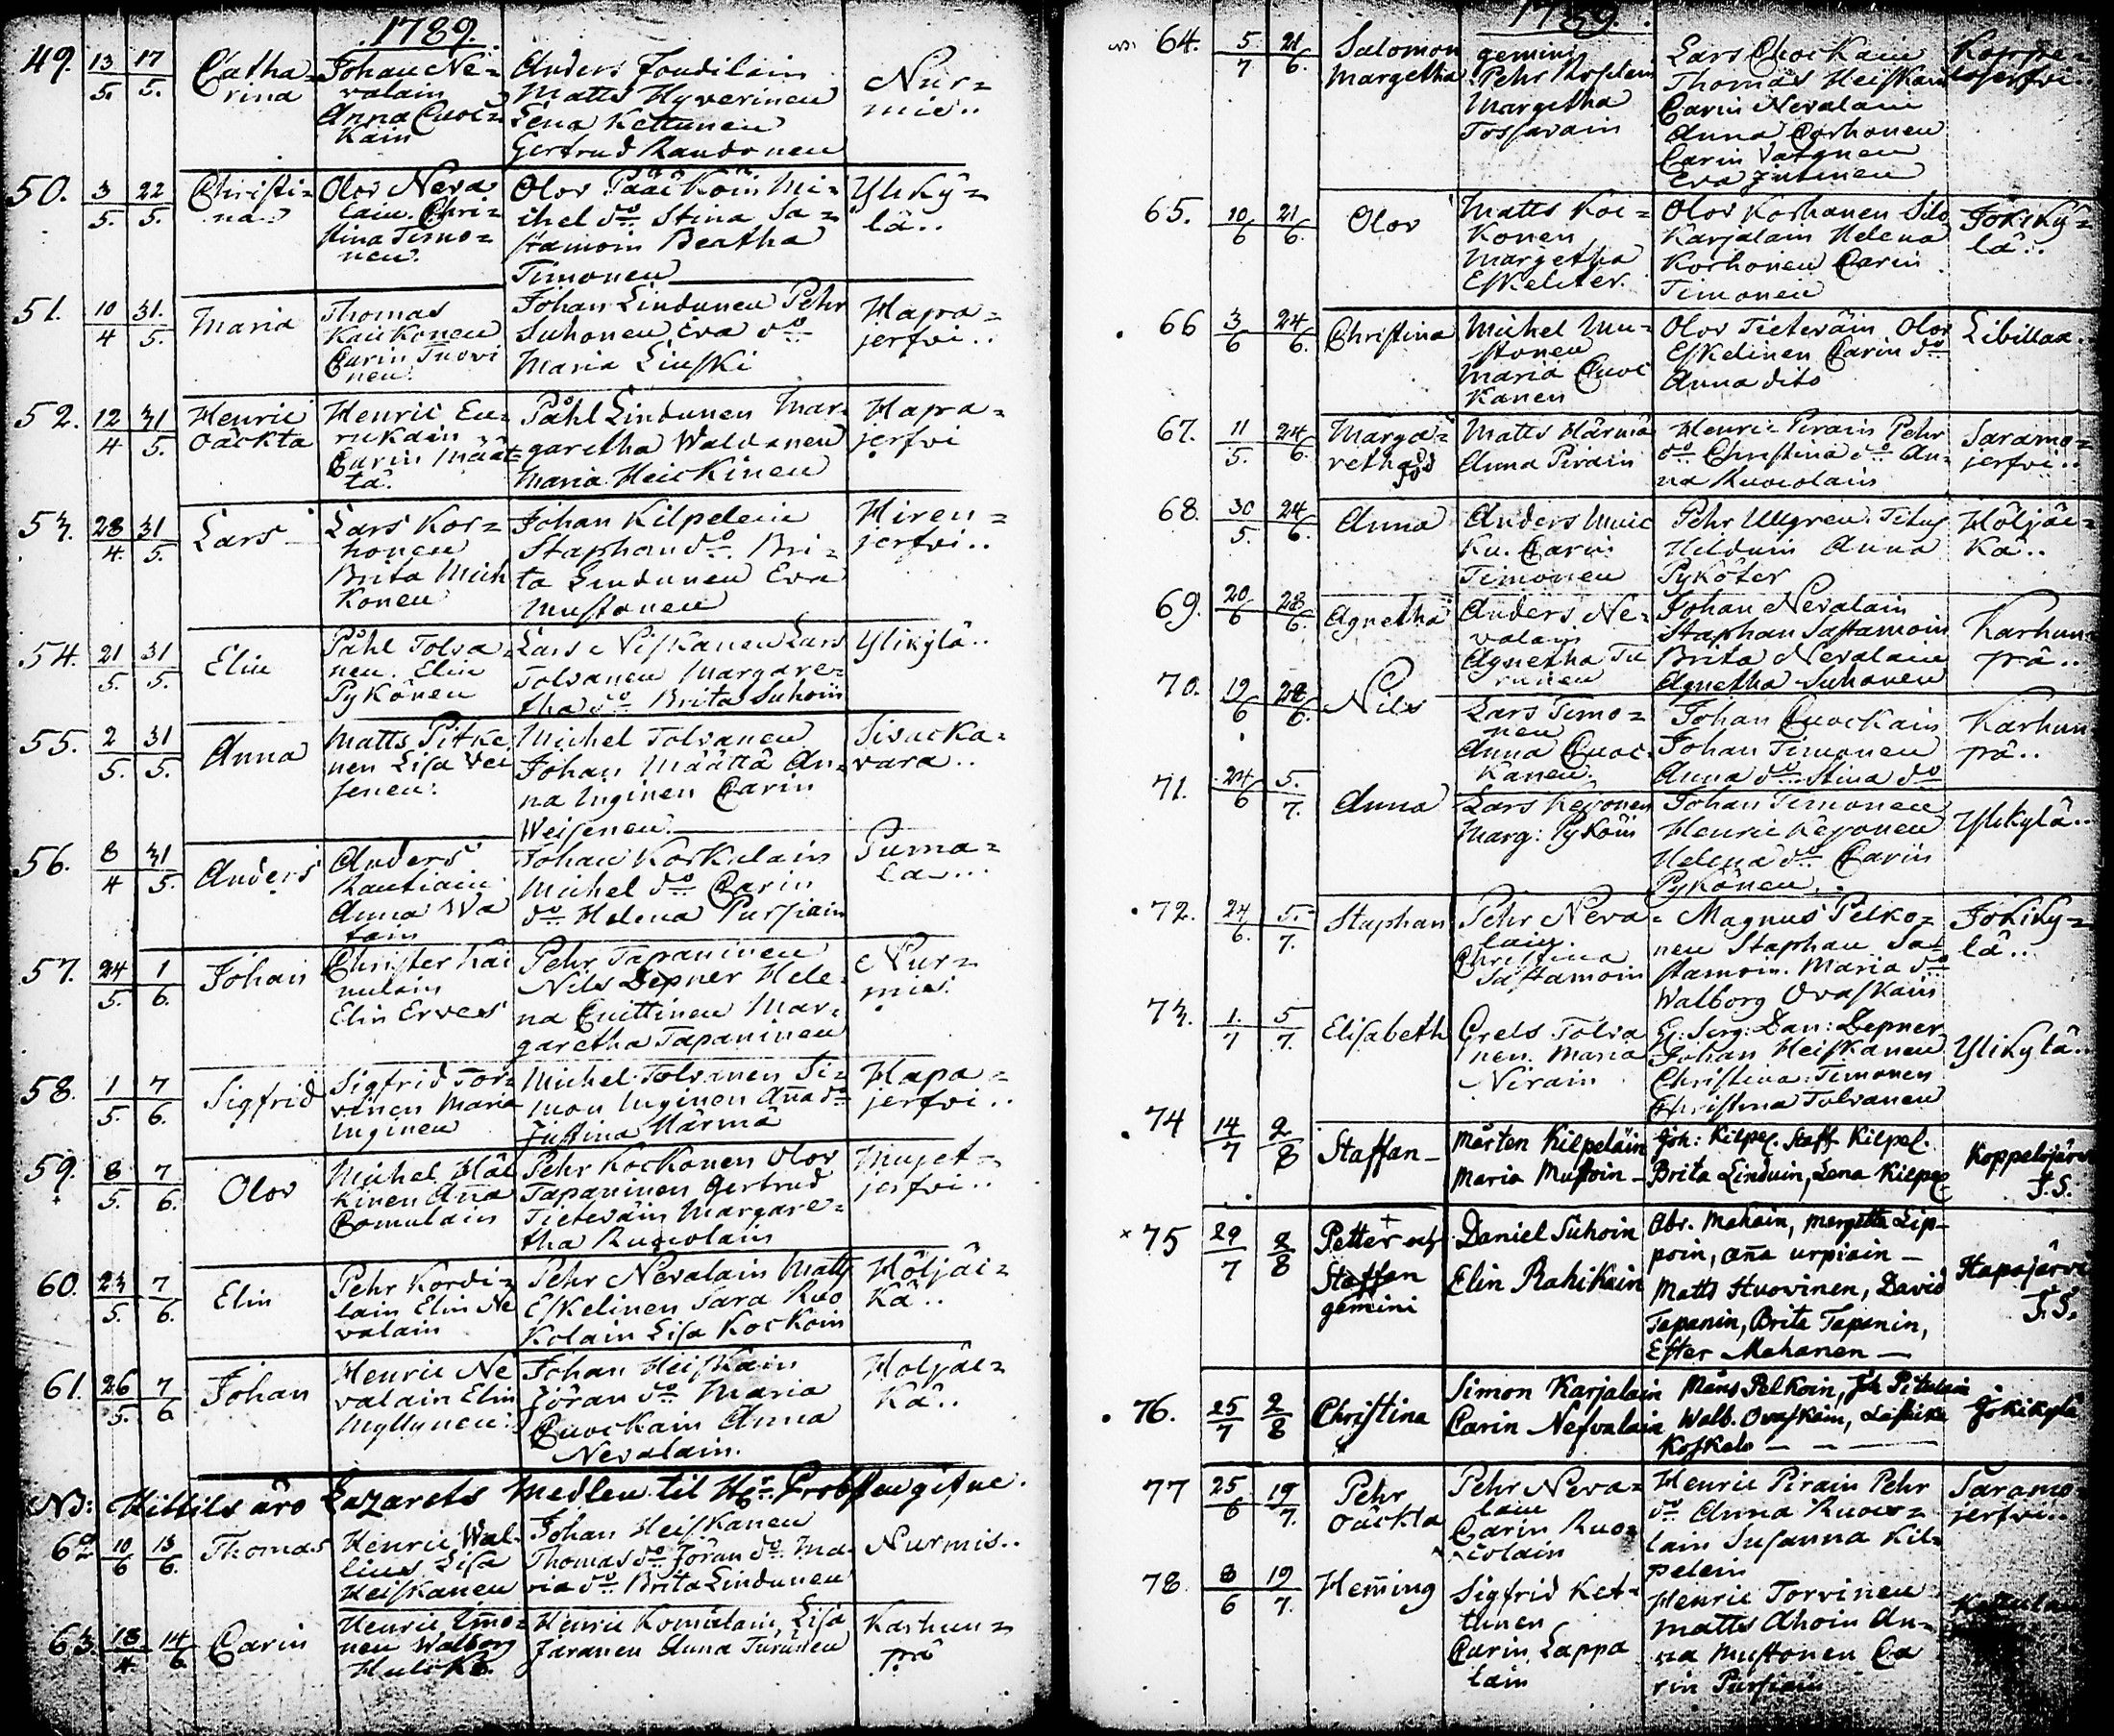 1789.
49. 13/5. 17/5. Catha=
rina
Johan Ne=
valain
Anna Cuoc=
kain
Anders Joudilain
Matts Hyverinen
Lena Kettunen
Gertrud Raudonen
Nur=
mis..
50. 3/5. 22/5. Christi=
na
Olov Neva
lain. Chri=
stina Timo=
nen.
Olov Pääkköin Mi=
chel do Stina Sa=
stamoin Beatha
Timonen
Yliky=
lä..
51. 10/4 31./5. Maria
Thomas
Kaickonen
Carin Tuovi
nen.
Johan Lindunen Pehr
Suhonen Eva do
Maria Liuski
Hapa=
jerfvi..
52. 12/4 31/5. Henric
oäckta
Henric Eu=
rickain
Carin Määt=
tä.
Påhl Lindunen Mar=
garetha Waldanen
Maria Heickinen
Hapa=
jerfvi
53. 28/4. 31/5. Lars
Lars Kor=
honen
Brita Mich
Konen
Johan Kilpelein
Staphan do. Bri=
ta Lindunen Eva
Mustonen
Hiren=
jerfvi..
54. 21/5. 31/5. Elin
Påhl Tolva=
nen. Elin
Pykönen
Lars Niskanen Lars
Tolvanen Margare=
tha do Brita Suhoin
Ylikylä..
55. 2/5. 31/5. Anna
Matts Pitke
nen Lisa Vei
senen.
Michel Tolvanen
Johan Määttä An=
na Inginen Carin
Weisenen.
Sivacka=
vara..
56. 8/4 31/5. Anders
Anders
Rautiain
Anna Wa
tain
Johan Korkalain
Michel do Carin
do Helena Pursiain
Puma=
la...
57. 24/5. 1/6. Johan
Christer Kai
nulain
Elin Ervest
Pehr Tapaninen
Nils Depner Hele=
na Cuittinen Mar=
garetha Tapaninen
Nur=
mis.
58. 1/5. 7/6. Sigfrid
Sigfrid Tor=
vinen Maria
Inginen
Michel Tolvanen Si=
mon Inginen Aña do
Justina Härmä
Hapa=
jerfvi..
59. 8/5. 7/6. Olov
Michel Häl
kinen Aña
Romulain
Pehr Kockonen Olov
Tapaninen Gertrud
Tieteväin Margare=
tha Ruocolain
Mujet=
jerfvi..
60. 23/5. 7/6. Elin
Pehr Kordi=
lain Elin Ne
valain
Pehr Nevalain Matts
Eskelinen Sara Ruo
Kolain Lisa Kockoin
Höljäi=
kä..
61. 26/5. 7/6 Johan
Henric Ne
valain Elin
Myllynen.
Johan Heiskain
Jöran do Maria
Cuockain Anna
Nevalain.
Höljäi=
kä..
NB: Hittils äro Lazarets Medlen til Hr Probsten gifne.
62 10/6 13/6. Thomas
Henric Wal=
lius Lisa
Heiskanen
Johan Heiskanen
Thomas do Jöran do Ma=
ria do Brita Lindunen
Nurmis..
63. 18/4. 14/6 Carin
Henric Timo=
nen Walborg
Henric Romulain, Lisa
Jaranen Anna Turunen
Karhun=
pä
1789.
NB: 64. 5/7 21/6. Salomon
Margetha
gemini
Pehr
Margetha
Tossavain
Lars Chockain
Thomas Heiskain
Carin Nevalain
Anna Corhonen
Carin Vatanen
Eva Jutinen
65. 10/6 21/6. Olov
Matts Koi=
konen
Margetha
Eskelder.
Olov Korhonen Silv
Karjalain Helena
Korhonen Carin
Timonen
Jokiky=
lä..
66 3/6 24/6. Christina
Michel Mu=
stonen
Maria Cuoc
Kanen
Olov Tieteväin Olov
Eskelinen Carin do
Anna dito
Libillaa.
67. 11/5. 24/6. Marga=
retha
Matts Härmä
Anna Pirain
Henric Pirain Pehr
do Christina do An=
na Ruocolain
Saramo=
jerfvi..
68. 30/5. 24/6. Anna
Anders Muic
ku. Carin
Timonen
Pehr Ullgren. Titus
Hilduin Anna
Pyköter
Höljäi=
kä..
69. 20/6 28/6. Agnetha
Anders Ne=
valain
Agnetha Tu
runen
Johan Nevalain
Staphan Sastamoin
Brita Nevalain
Agnetha Suhonen
Karhun
pä..
70. 19/6 28/6. Nils
Lars Timo=
nen
Anna Cuoc=
kanen.
Johan Cuockain
Johan Timonen
Anna do Stina do
Karhun
pä..
71. 24/6 5./7. Anna
Lars Keronen
Marg: Pyköin
Johan Timonen
Henric Keronen
Helena do Carin
Pykönen
Ylikylä..
72. 24/6. 5./7. Staphan
Pehr Neva=
lain.
Christina
Sastamoin
Magnus Pelko=
nen Staphan Sa=
stamoin. Maria do
Walborg Ovaskain
Jokiky=
lä..
73. 1./7 5/7. Elisabeth
Grels Tolva
nen. Maria
Nirain
Gl: Serg: Dan: Depner
Johan Heiskanen
Christina: Timonen
Christina Tolvanen
Ylikylä..
74 14/7 2/8 Staffan
Mårten Kilpeläin
Maria Mustoin
Joh: Kilpel. Staff Kilpel.
Brita Linduin, Lena Kilpel
Koppelojärvi
J.S.
75 29/7 2/8 Petter och
Staffan
gemini
Daniel Suhoin
Elin Rahikain
Abr. Mahoin, Margetha Lip=
poin, Aña urpiain
Matts Huovinen, David
Tapanin, Brita Tapanin,
Ester Mahanen
Hapajärvi
J.S.
76. 25/7 2/8 Christina
Simon Karjalain
Carin Nefvalain
Måns Pelkoin, Joh Pitulain
Walb. Ovaskain,
Koskelo
Jokikylä
77 25/6 19/7. Pehr
oäckta
Pehr Neva=
lain
Carin Ruo=
colain
Henric Pirain Pehr
do Anna Ruoco=
lain Susanna Kil=
pelein
Saramo=
jerfvi..
78 8/6 19/7. Hem̃ing
Sigfrid Ket=
tunen
Carin Lappa
lain
Henric Torvinen
Matts Ahoin An=
na Mustonen Ca
rin Pursiain